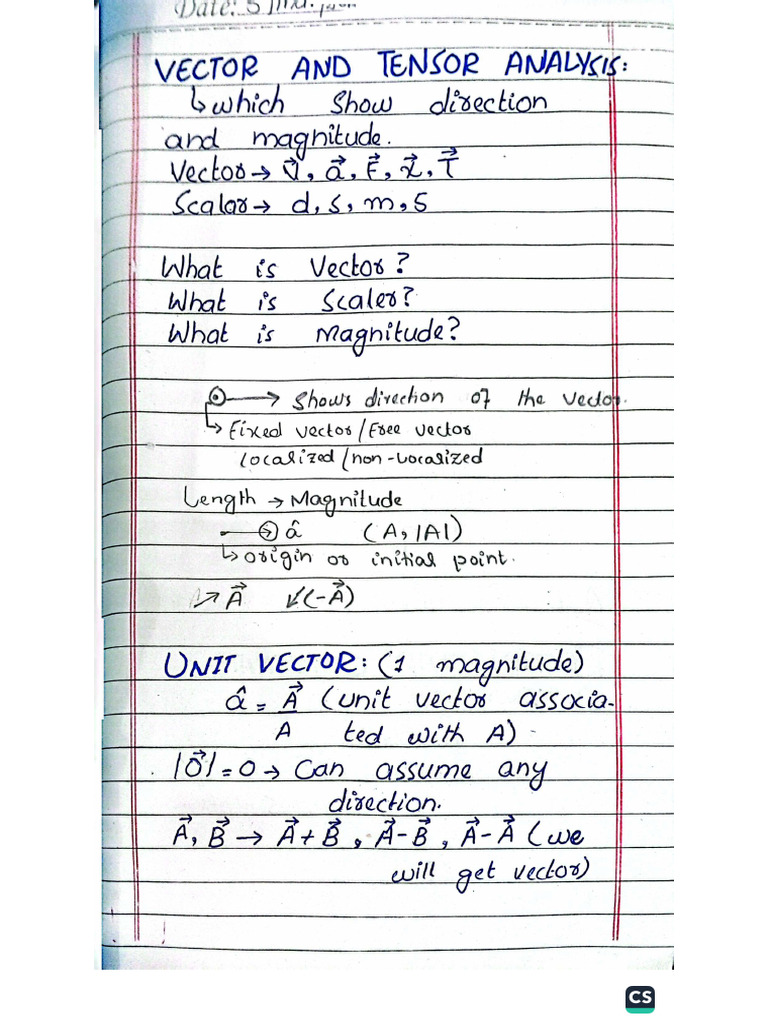 Date: 5
VECTOR AND TENSOR ANALYSIS:
↳which show direction
and magnitude.
Vector→ V⃗, a⃗, F⃗, x⃗, T⃗
Scalar→ d, s, m, s
What is Vector?
What is Scaler?
What is Magnitude?
→ Shows direction of the vector.
↳Fixed vector/Free vector
localized/non-localized
Length → Magnitude
â (A, |A|)
↳origin or initial point.
↗A⃗ ↙(-A⃗)
UNIT VECTOR: (1 magnitude)
â = A⃗ (unit vector associa-
A ted with A)-
|0⃗| = 0 → Can assume any
direction.
A⃗, B⃗ → A⃗+B⃗, A⃗-B⃗, A⃗-A⃗ (we
will get vector)
CS